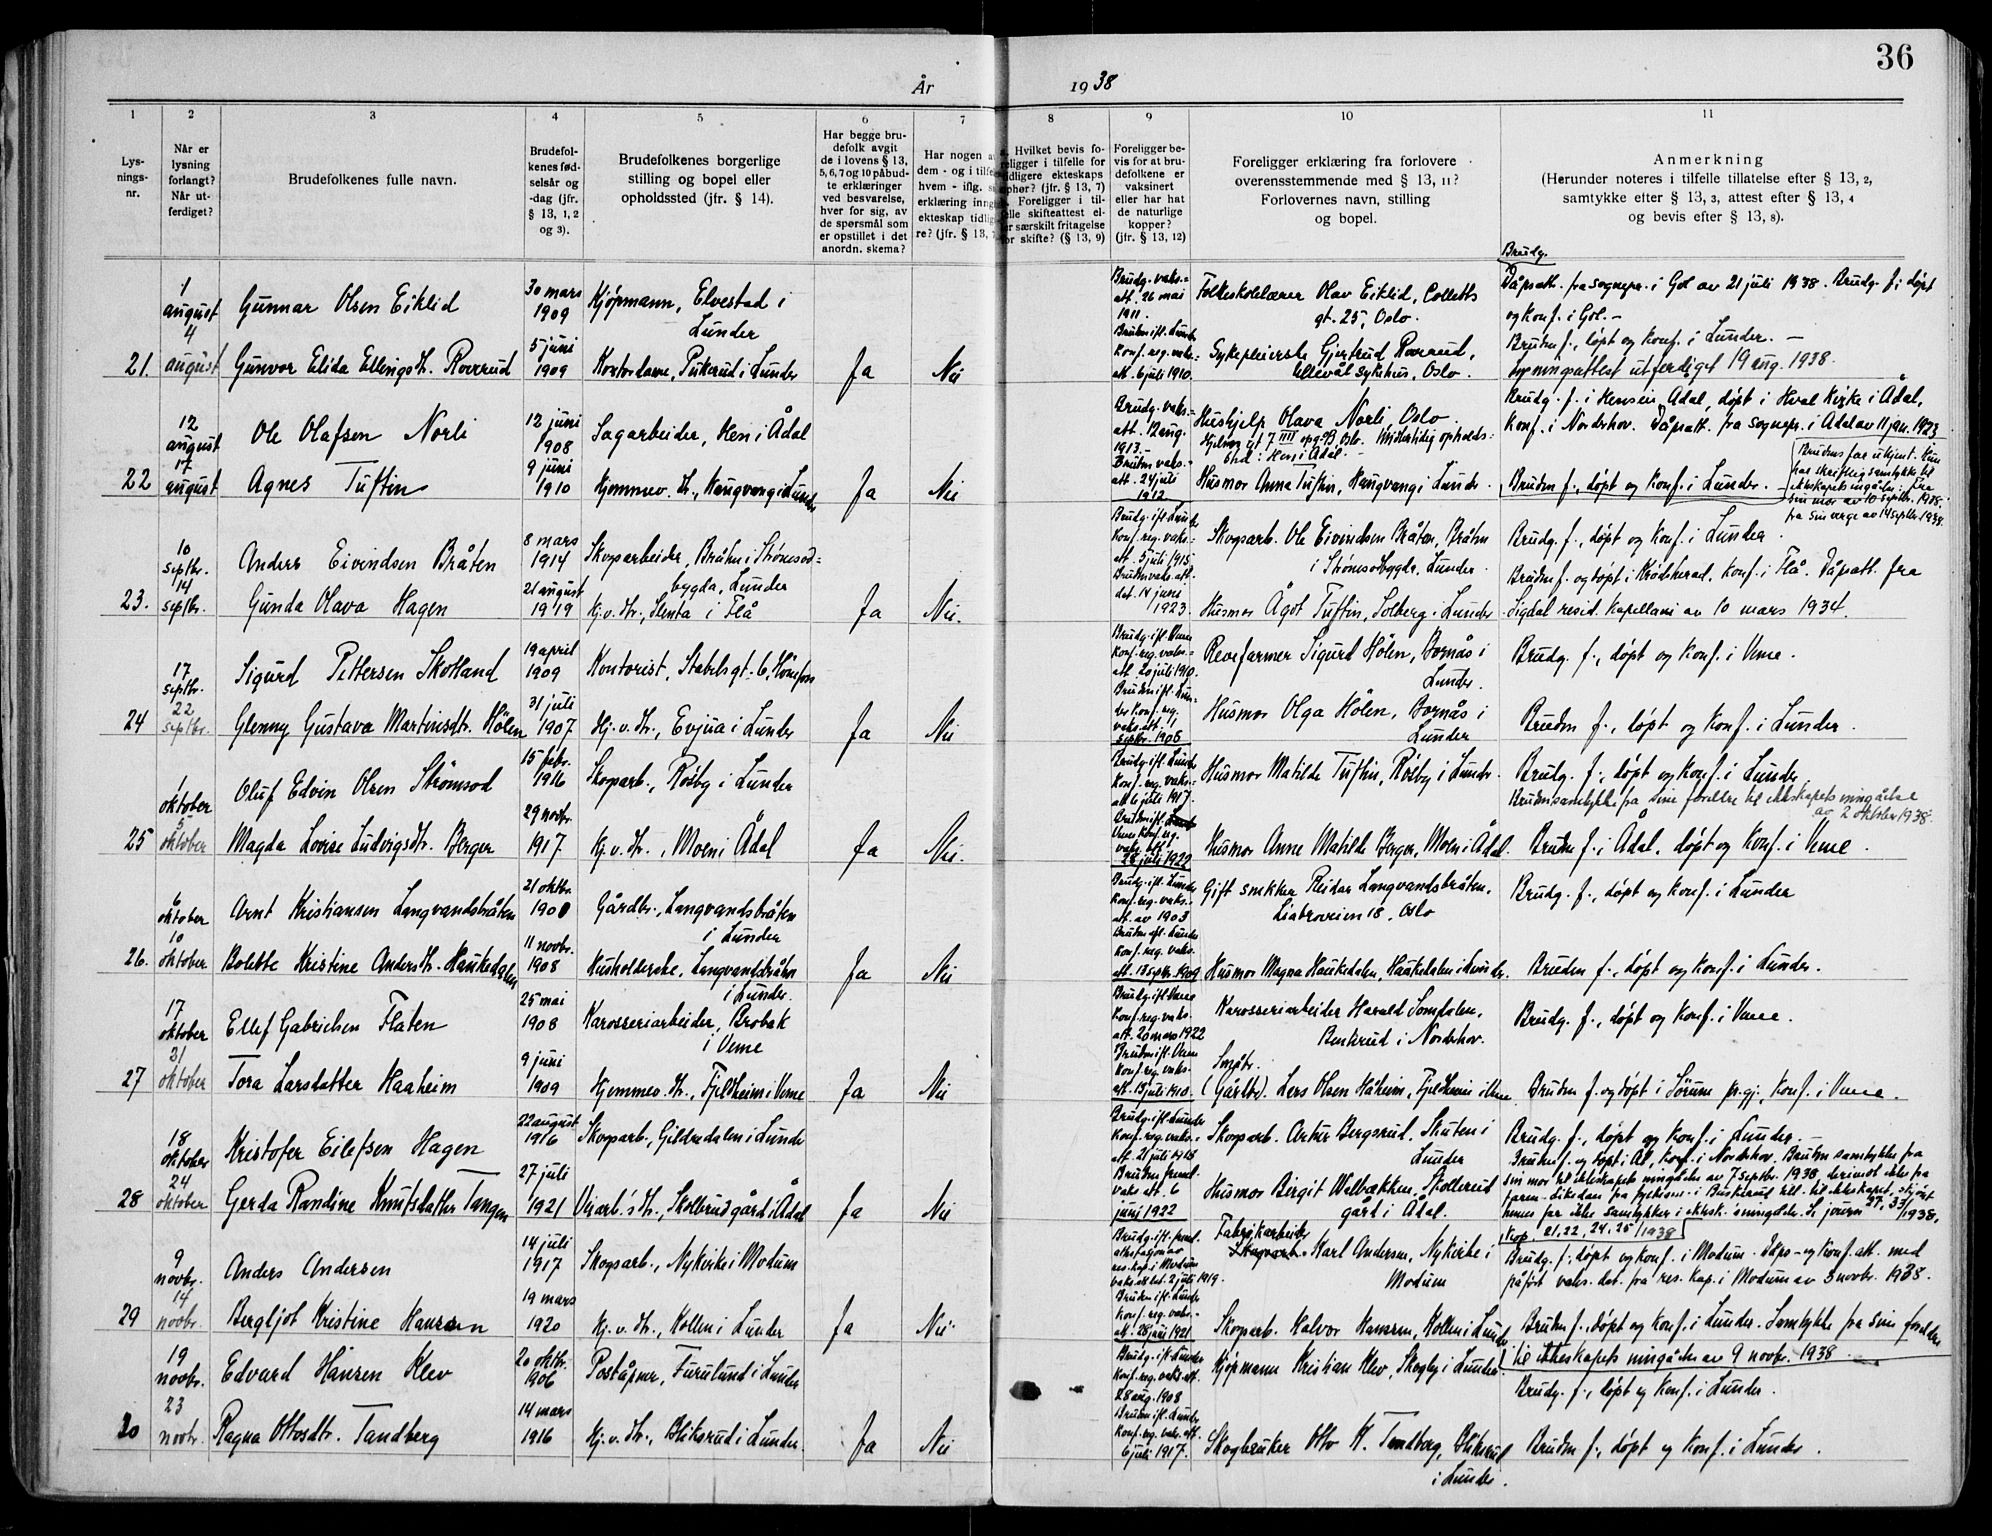 36
År
1938
1
2
3
4
5
6
7
8
9
10
11
Lys-
nings-
nr.
Når er
lysning
forlangt?
Når ut-
ferdiget?
Brudefolkenes fulle navn.
Brudefol-
kenes fød-
selsår og
-dag (jfr.
§ 13, 1, 2
og 3).
Brudefolkenes borgerlige
stilling og bopel eller
opholdssted (jfr. § 14).
Har begge bru-
defolk avgit
de i lovens § 13,
5, 6, 7 og 10 påbud-
te erklæringer
ved besvarelse,
hver for sig, av
de spørsmål som
er opstillet i det
anordn. skema?
Har nogen a
dem - og i tilfe
hvem - iflg.
erklæring inng
ekteskap tidlig
re? (jfr. § 13,
Hvilket bevis fo-
religger i tilfelle for
tidligere ekteskaps
ophør? (jfr. § 13, 7)
Foreligger i til-
felle skifteattest el-
er særskilt fritagelse
for skifte? (§ 13, 9)
Foreligger be-
vis for at bru-
defolkene er
vaksinert
eller har hat
de naturlige
kopper?
(jfr. § 13, 12)
Foreligger erklæring fra forlovere
overensstemmende med § 13, 11?
Forlovernes navn, stilling
og bopel.
Anmerkning
(Herunder noteres i tilfelle tillatelse efter § 13, 2,
samtykke efter § 13, 3, attest efter § 13, 4
og bevis efter § 13, 8).
21.
1
august
4
august
Gunnar Olsen Eiklid
Gunvor Elida Ellingsdt. Roverud
30 mars
1909
5 juni
1909
Kjøpmann, Elvestad i
Lunder
Kontordame, Pukerud i Lunder
Ja
Nei
Brudg. vaks.-
att. 26 mai
1911.
Brudens ifl. Lunder
Konf. reg. vaks.-
att. 6 juli 1910.
Folkeskolelærer Olav Eiklid, Colletts
gt. 25, Oslo.
Sykepleierske Gjertrud Roverud,
Ullevål sykehus, Oslo.
Brudg.
Dåpsatt. fra sognepr. i Gol av 21 juli 1938. Brudg. f., døpt
og konf. i Gol. -
Bruden f., døpt og konf. i Lunder. -
Lysningsattest utferdiget 19 aug. 1938.
22
12
august
17
august
Ole Olafsen Norli
Agnes Tuftin
12 juni
1908
9 juni
1910
Sagarbeider, Hen i Ådal
Hjemmev. dt., Haugvang i Lunder
Ja
Nei
Brudg. vaks.-
att. 12 aug.
1913.
Bruden vaks.-
att. 24 juli
1912
Hushjelp Olava Norli Oslo
sted: Hen i Ådal.
Husmor Anna Tuftin, Haugvang i Lunder.
Brudg. f. i Hensein Ådal, døpt i Hval kirke i Ådal,
konf. i Norderhov. Dåpsatt. fra sognepr. i Ådal av 11 jan. 1923
Bruden f., døpt og konf. i Lunder. -
Brudens far ukjent. Hun
har skriftlig samtykke til
ekteskapets inngåelse: fra
sin mor av 10 septbr. 1938.
fra sin verge av 14 septbr 1938.
23.
10
septbr.
14
septbr.
Anders Eivindsen Bråten
Gunda Olava Hagen
8 mars
1914
21 august
1919
Skogsarbeider, Bråten i Strømsod-
bygda, Lunder
Hj. v. dt., Slenta i Flå
Ja
Nei.
Brudg. ifl. Lunder
Konf. reg. vaks.-
att. 5 juli 1915.
Bruden vaks. att.
dat. 14 juni
1923.
Skogsarb. Ole Eivindsen Bråten, Bråten
i Strømsodbygda, Lunder.
Husmor Ågot Tuftin, Solberg i Lunder
Brudg. f., døpt og konf. i Lunder.
Bruden f. og døpt i Krødsherad, konf. i Flå. Dåpsatt. fra
Sigdal resid. kapellani av 10 mars 1934.
24
17
septbr.
22
septbr.
Sigurd Pettersen Skotland
Glenny Gustava Martinsdtr. Hølen
19 april
1909
31 juli
1907
Kontorist, Stabelsgt. 6, Hønefoss
Hj. v. dt., Evjua i Lunder
Ja
Nei
Brudg. ifl. Veme
Konf. reg. vaks.-
att. 20 juli 1910.
Bruden ifl. Lun-
der konf. reg.
vaks. att. 11
septbr. 1908
Revefarmer Sigurd Hølen, Bornås i
Lunder.
Husmor Olga Hølen, Bornås i
Lunder
Brudg. f., døpt og konf. i Veme.
Bruden f., døpt og konf. i Lunder.
25
1
oktober
5
oktober
Oluf Edvin Olsen Strømsod
Magda Lovise Ludvigsdt. Berger
15 febr.
1916
29 novbr.
1917
Skogsarb., Røsby i Lunder
Hj. v. dt., Moen i Ådal
Ja
Nei.
Brudg. ifl. Lunder
Konf. reg. vaks.-
att. 6 juli 1917.
Bruden ifl.
Veme konf. reg.
vaks. att.
28 juli 1922
Husmor Matilde Tuftin, Røsby i Lunder.
Husmor Anne Matilde Berger, Moen i Ådal.
Brudg. f., døpt og konf. i Lunder.
Bruden samtykke fra sine foreldre til ekteskapets inngåelse
av 2 oktober 1938.
Bruden f. i Ådal. døpt og konf. i Veme.
26.
6
oktober
10
oktober
Arnt Kristiansen Langvandsbråten
Bolette Kristine Andersdt. Haukedalen
21 oktbr.
1900
11 novbr.
1908
Gårdbr., Langvandsbråten
i Lunder
Husholderske, Langvandsbråten
i Lunder.
Ja
Nei
Brudg. ifl. Lunder
Konf. reg. vaks.-
att. av 1903
Bruden ifl. Lunder
Konf. reg. vaks.
att. 13 septbr. 1909
Gift snekker Reidar Langvandsbråten,
Liabroveien 18, Oslo
Husmor Magna Haukedalen, Haukedalen i Lunder.
Brudg. f., døpt og konf. i Lunder
Bruden f., døpt og konf. i Lunder.
27
17
oktober
21
oktober
Ellef Gabrielsen Flaten
Tora Larsdatter Haaheim
25 mai
1908
9 juni
1909
Karosseriarbeider, Brobæk
i Veme
Hjemmev. dt., Fjeldheim i Veme
Ja
Nei
Brudg. ifl. Veme
Konf. reg. vaks.
att. 20 mars 1922
Bruden ifl. Veme
Konf. reg. vaks.-
att. 13 juli 1910.
Karosseriarbeider Harald Somdalen,
Benterud i Norderhov.
Småbr.
(Gårdbr). Lars Olsen Håheim, Fjeldheim i Veme
Brudg. f., døpt og konf. i Veme.
Bruden f. og døpt i Sørum pr.gj., konf. i Veme.
28
18
oktober
24
oktober
Kristofer Eilefsen Hagen
Gerda Randine Knutsdatter Tangen
22 august
1916
27 juli
1921
Skogsarb., Gildredalen i Lunder
Veiarb.'s dt., Skollerud gård i Ådal
Ja
Nei
Brudg. ifl. Lunder
Konf. reg. vaks.-
att. 21 juli 1918
Bruden freml.
vaks att. 6
juni 1922
Skogsarb. Artur Bergsrud, Skuten i
Lunder
Husmor Birgit Velbækken, Skollerud
gård i Ådal.
Brudg. f., døpt og konf. i Lunder. -
Bruden f. og døpt i Ål, konf. i Norderhov. Bruden samtykke fra
sin mor til ekteskapets inngåelse av 7 septbr. 1938, derimot ikke fra
faren. Likedan fra fylkesm. i Buskerud till. til ekteskapet, skjønt
hennes far ikke samtykker i ektesk.s inngåelse. Se journr 27, 33/1938,
Kop. 21, 22, 24, 25/1938
29
9
novbr.
14
novbr.
Anders Andersen
Bergljot Kristine Hansen
14 juli
1917
19 mars
1920
Skogsarb., Nykirke i Modum
Hj. v. dt., Kollen i Lunder
Ja
Nei
Brudg. ifl. freml.
attestasjon av
res. kap. i Modum
vaks. att. dat. 2 juli 1919.
Bruden ifl. Lunder
Konf. reg. vaks.-
att. 28 juni 1921
Fabrikarbeider
Skogsarb. Karl Andersen, Nykirke i
Modum
Skogsarb. Halvor Hansen, Kollen i Lunder
Brudg. f., døpt og konf. i Modum. Dåps- og konf. att. med
påført vaks. dat. fra res. kap. i Modum av 3 novbr. 1938.
Bruden f., døpt og konf. i Lunder. Samtykke fra sine foreldre
til ekteskapets inngåelse av 9 novbr. 1938.
30
19
novbr.
23
novbr.
Edvard Hansen Klev
Ragna Ottosdtr. Tandberg
20 oktbr.
1906
14 mars
1916
Poståpner, Furulund i Lunder
Hj. v. dt., Bliksrud i Lunder.
Ja
Nei
Brudg. ifl. Lunder
Konf. reg. vaks. att.
28 aug. 1908
Bruden ifl. Lunder
Konf. reg. vaks. att.
6 juli 1917.
Kjøpmann Kristian Klev, Skogly i Lunder.
Skogbruker Otto H. Tandberg, Bliksrud
i Lunder.
Brudg. f., døpt og konf. i Lunder.
Bruden f., døpt og konf. i Lunder.